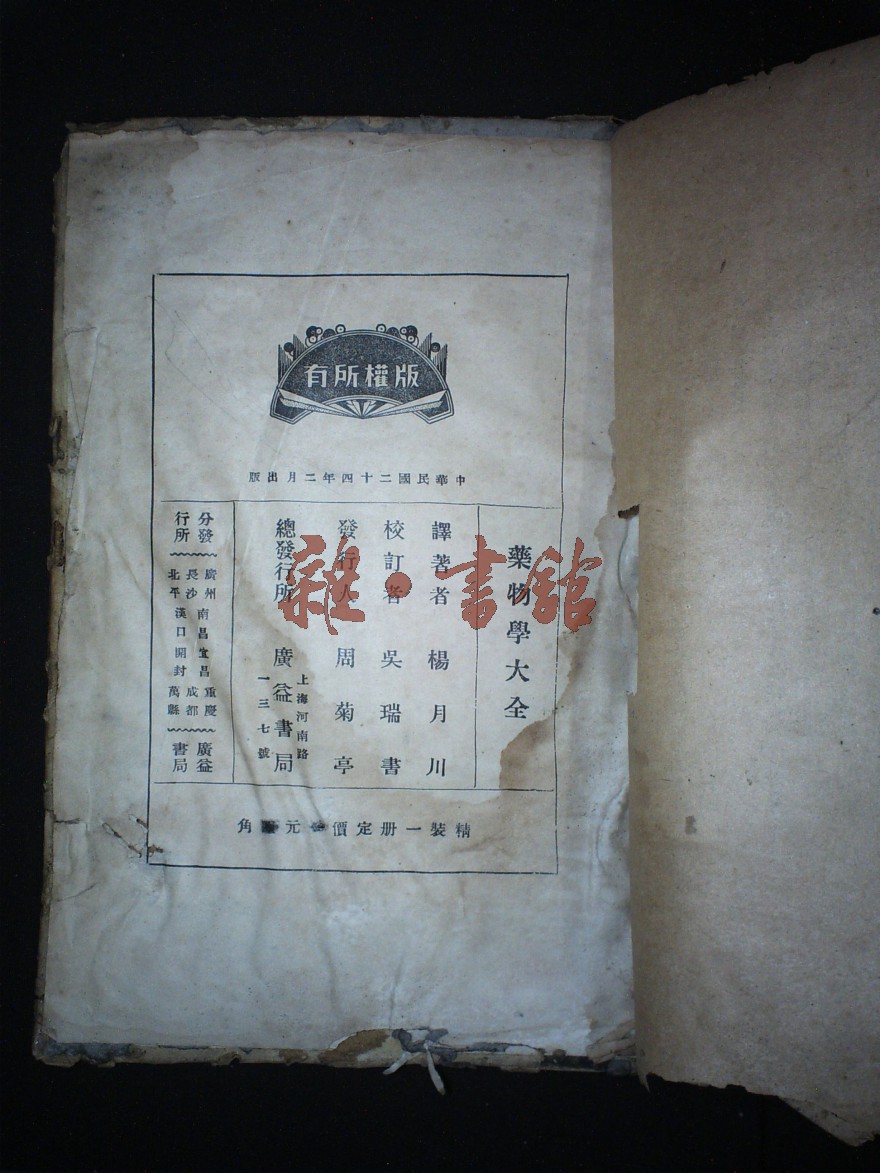 版權所有
中華民國二十四年二月出版
藥物學大全
譯著者 楊月川
校訂者 吳瑞書
發行人 周菊亭
總發行所 廣益書局
上海河南路
一三七號
分發行所
廣州 南昌 宜昌 重慶
長沙 漢口 開封 成都 萬縣
北平
廣益書局
精裝一册定價 元 角
雜·書館